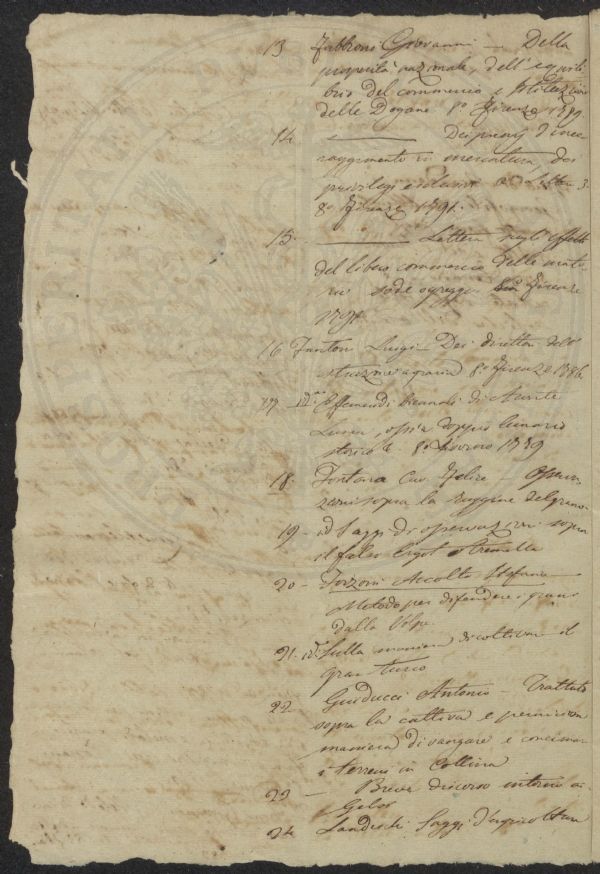 13 Fabbroni Giovanni — Della
prosperità nazionale, dell'equili
brio del commercio e Istituzion
delle Dogane 8° Firenze 1789
14. — Dei premj d'inco
raggimento in mercatura, dei
privilegi esclusivi &
8° Firenze 1791.
15. — Lettera sugli effetti
del libero commercio delle mate
rie sode o gregge Firenze
1791
16 Fantoni Luigi Dei direttori dell'
istruzione agraria 8° Firenze 1786
17 id.
Luna, ossia doppio lunario
storico & 8° Livorno 1789
18. Fontana Cav. Felice — Osserva
zioni sopra la ruggine del grano
19 id Saggi di osservazioni sopra
il falso Ergot e tremella
20 — Forzoni Accolti Stefano
Metodo per difendere i grani
dalla Volpe
21. id. Sulla maniera di coltivare il
gran turco
22 Guiducci Antonio — Trattato
sopra la cattiva e perniciosa
maniera di vangare e concimar
i terreni in Collina
23 — Breve discorso intorno ai
Gelsi
24 Landeschi Saggi d'agricoltura